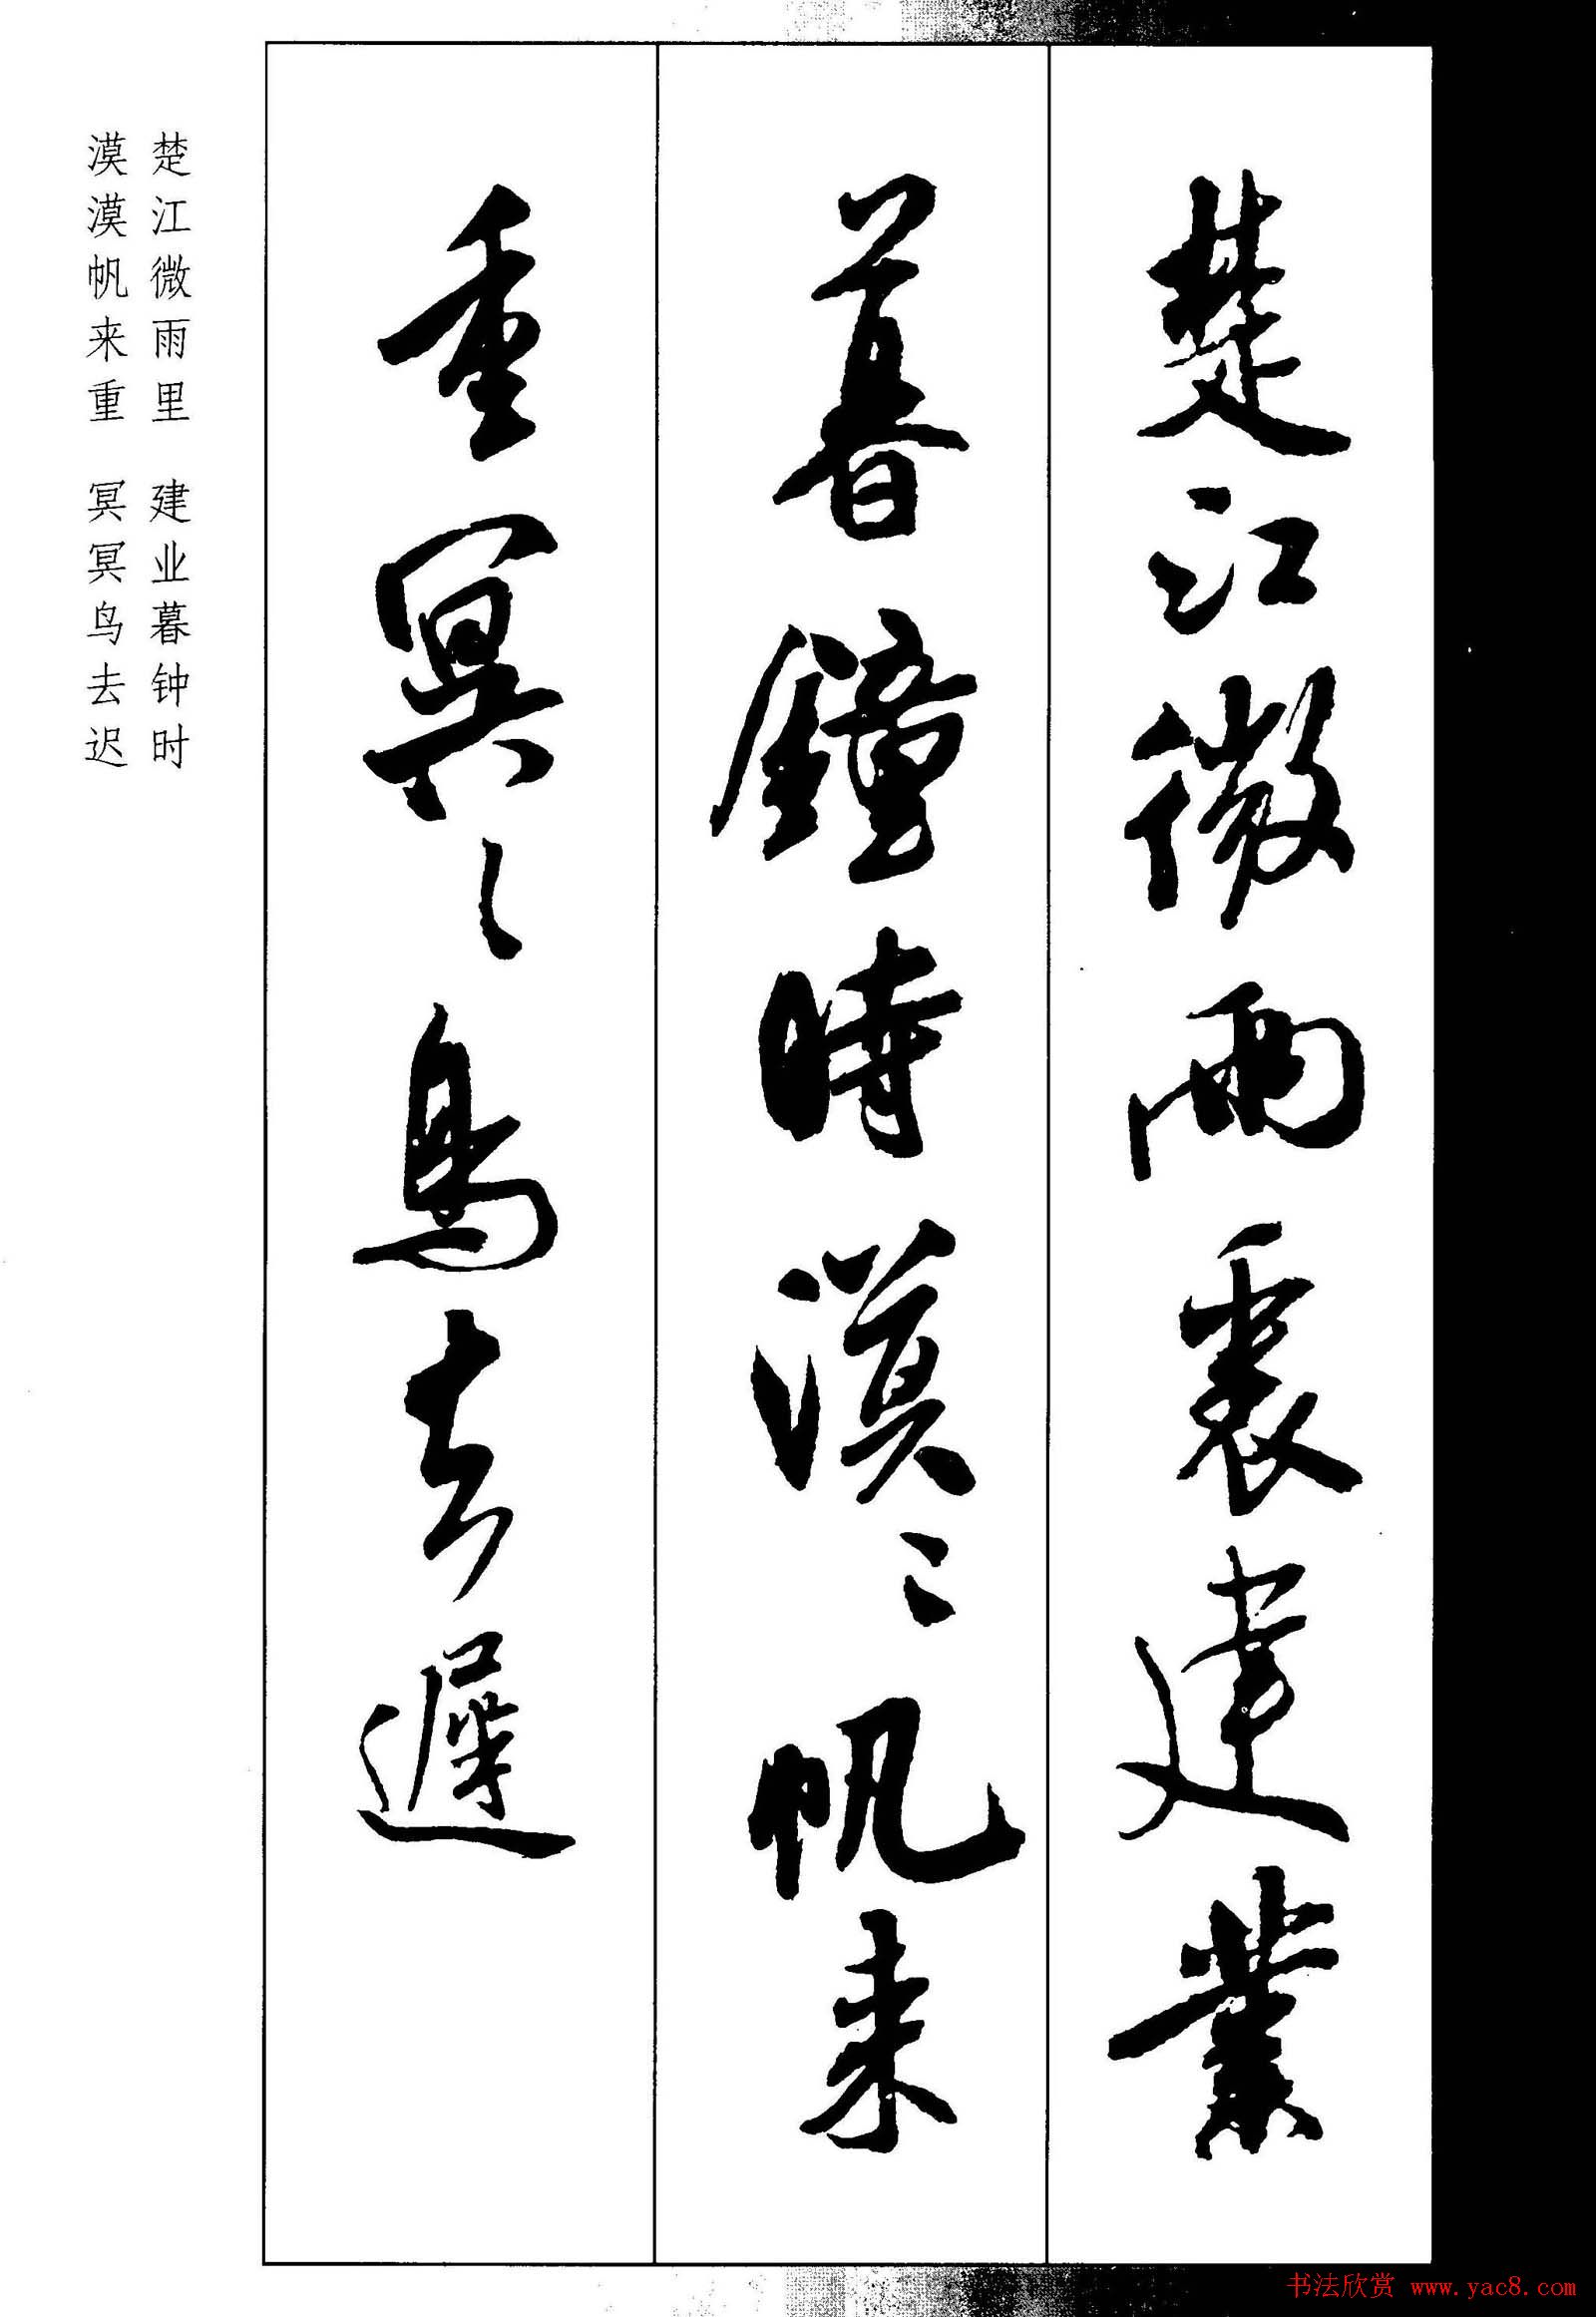 楚江微雨裏建業
暮鐘時漠〻帆来
重冥〻鳥去遲
楚江微雨里 建业暮钟时
漠漠帆来重 冥冥鸟去迟
书法欣赏 www.yac8.com